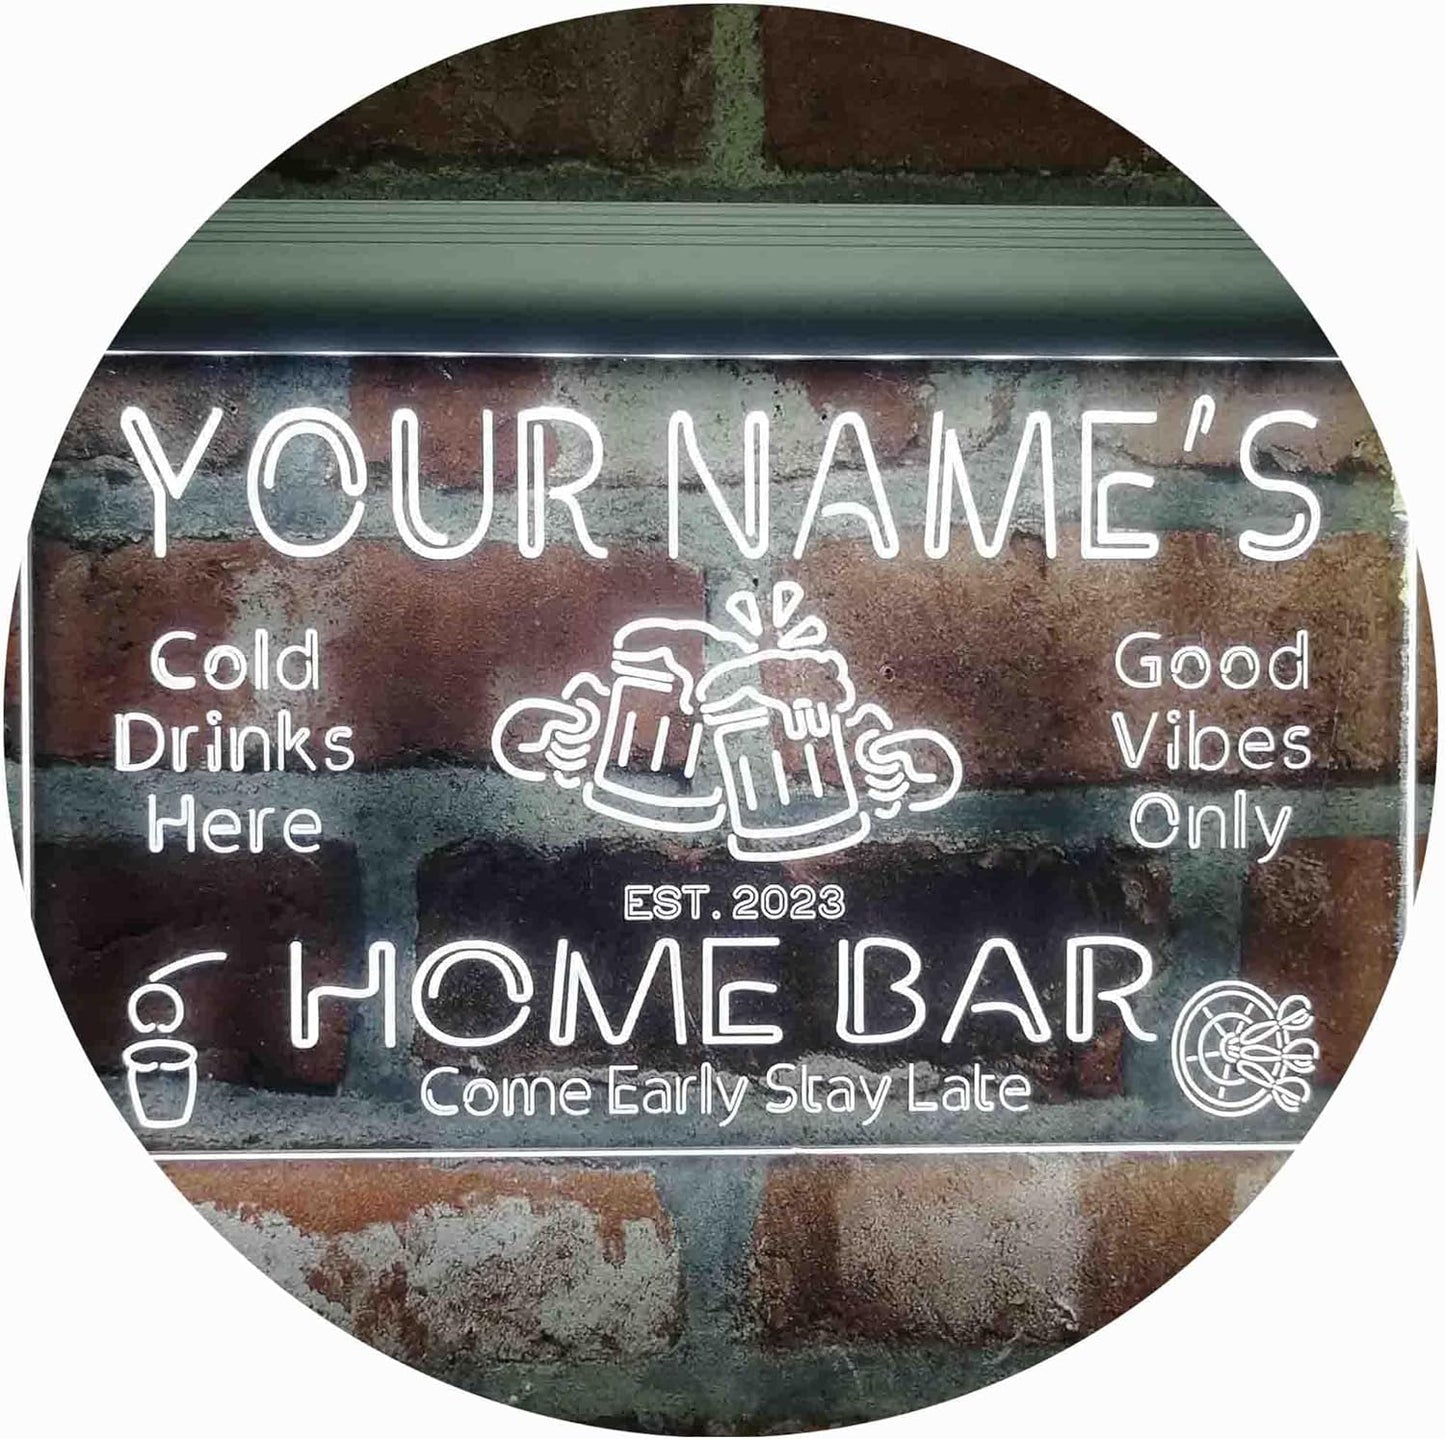 YOUR NAME'S
Cold
Drinks
Here
Good
Vibes
Only
EST. 2023
HOME BAR
Come Early Stay Late